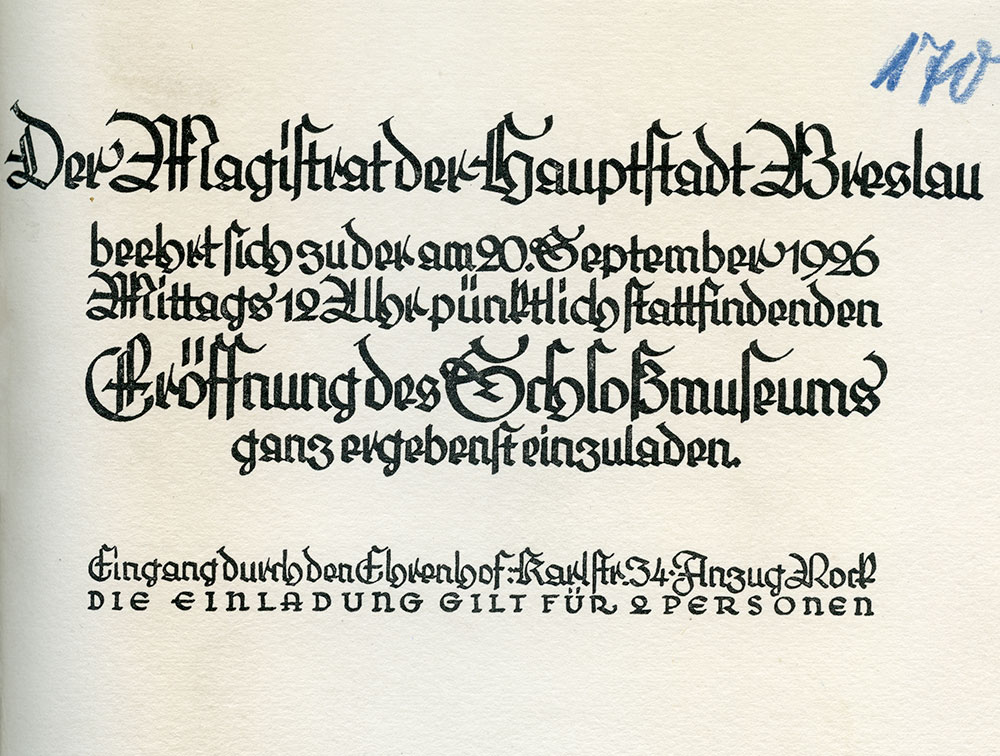 170
Der Magistrat der Hauptstadt Breslau
beehrt sich zu der am 20. September 1926
Mittags 12 Uhr pünktlich stattfindenden
Eröffnung des Schloßmuseums
ganz ergebenst einzuladen.
Eingang durch den Ehrenhof: Karlstr. 34 · Anzug Rock
DIE EINLADUNG GILT FÜR 2 PERSONEN